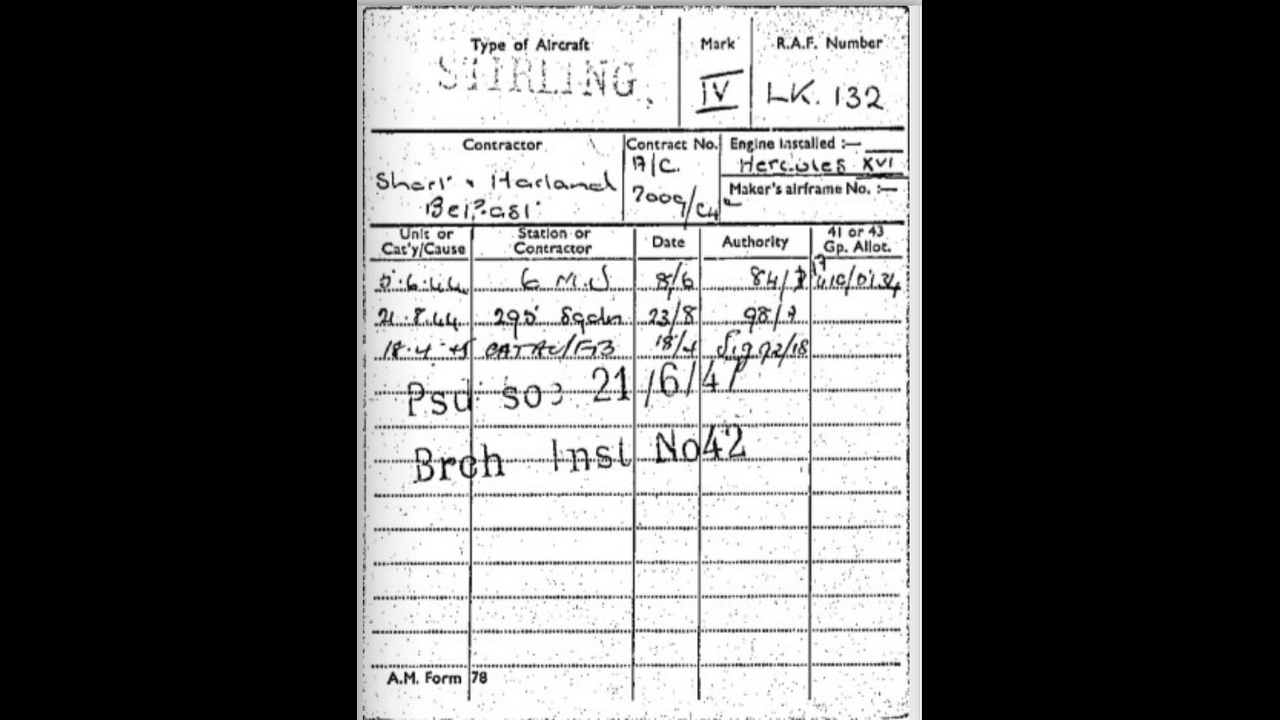 Type of Aircraft
STIRLING
Mark
IV
R.A.F. Number
LK. 132
Contractor
Short & Harland
Belfast
Contract No.
A/C.
7009/C4
Engine Installed :—
Hercules XVI
Maker's airframe No. :—
Unit or Cat'y/Cause
Station or Contractor
Date
Authority
41 or 43 Gp. Allot.
5.6.44 6 M.U 8/6 84/7
21.8.44 295 Sqdn 23/8 98/7
18.4.45 CAT AC/FB 18/4
Psu soc 21/6/47
Brch Inst No42
A.M. Form 78